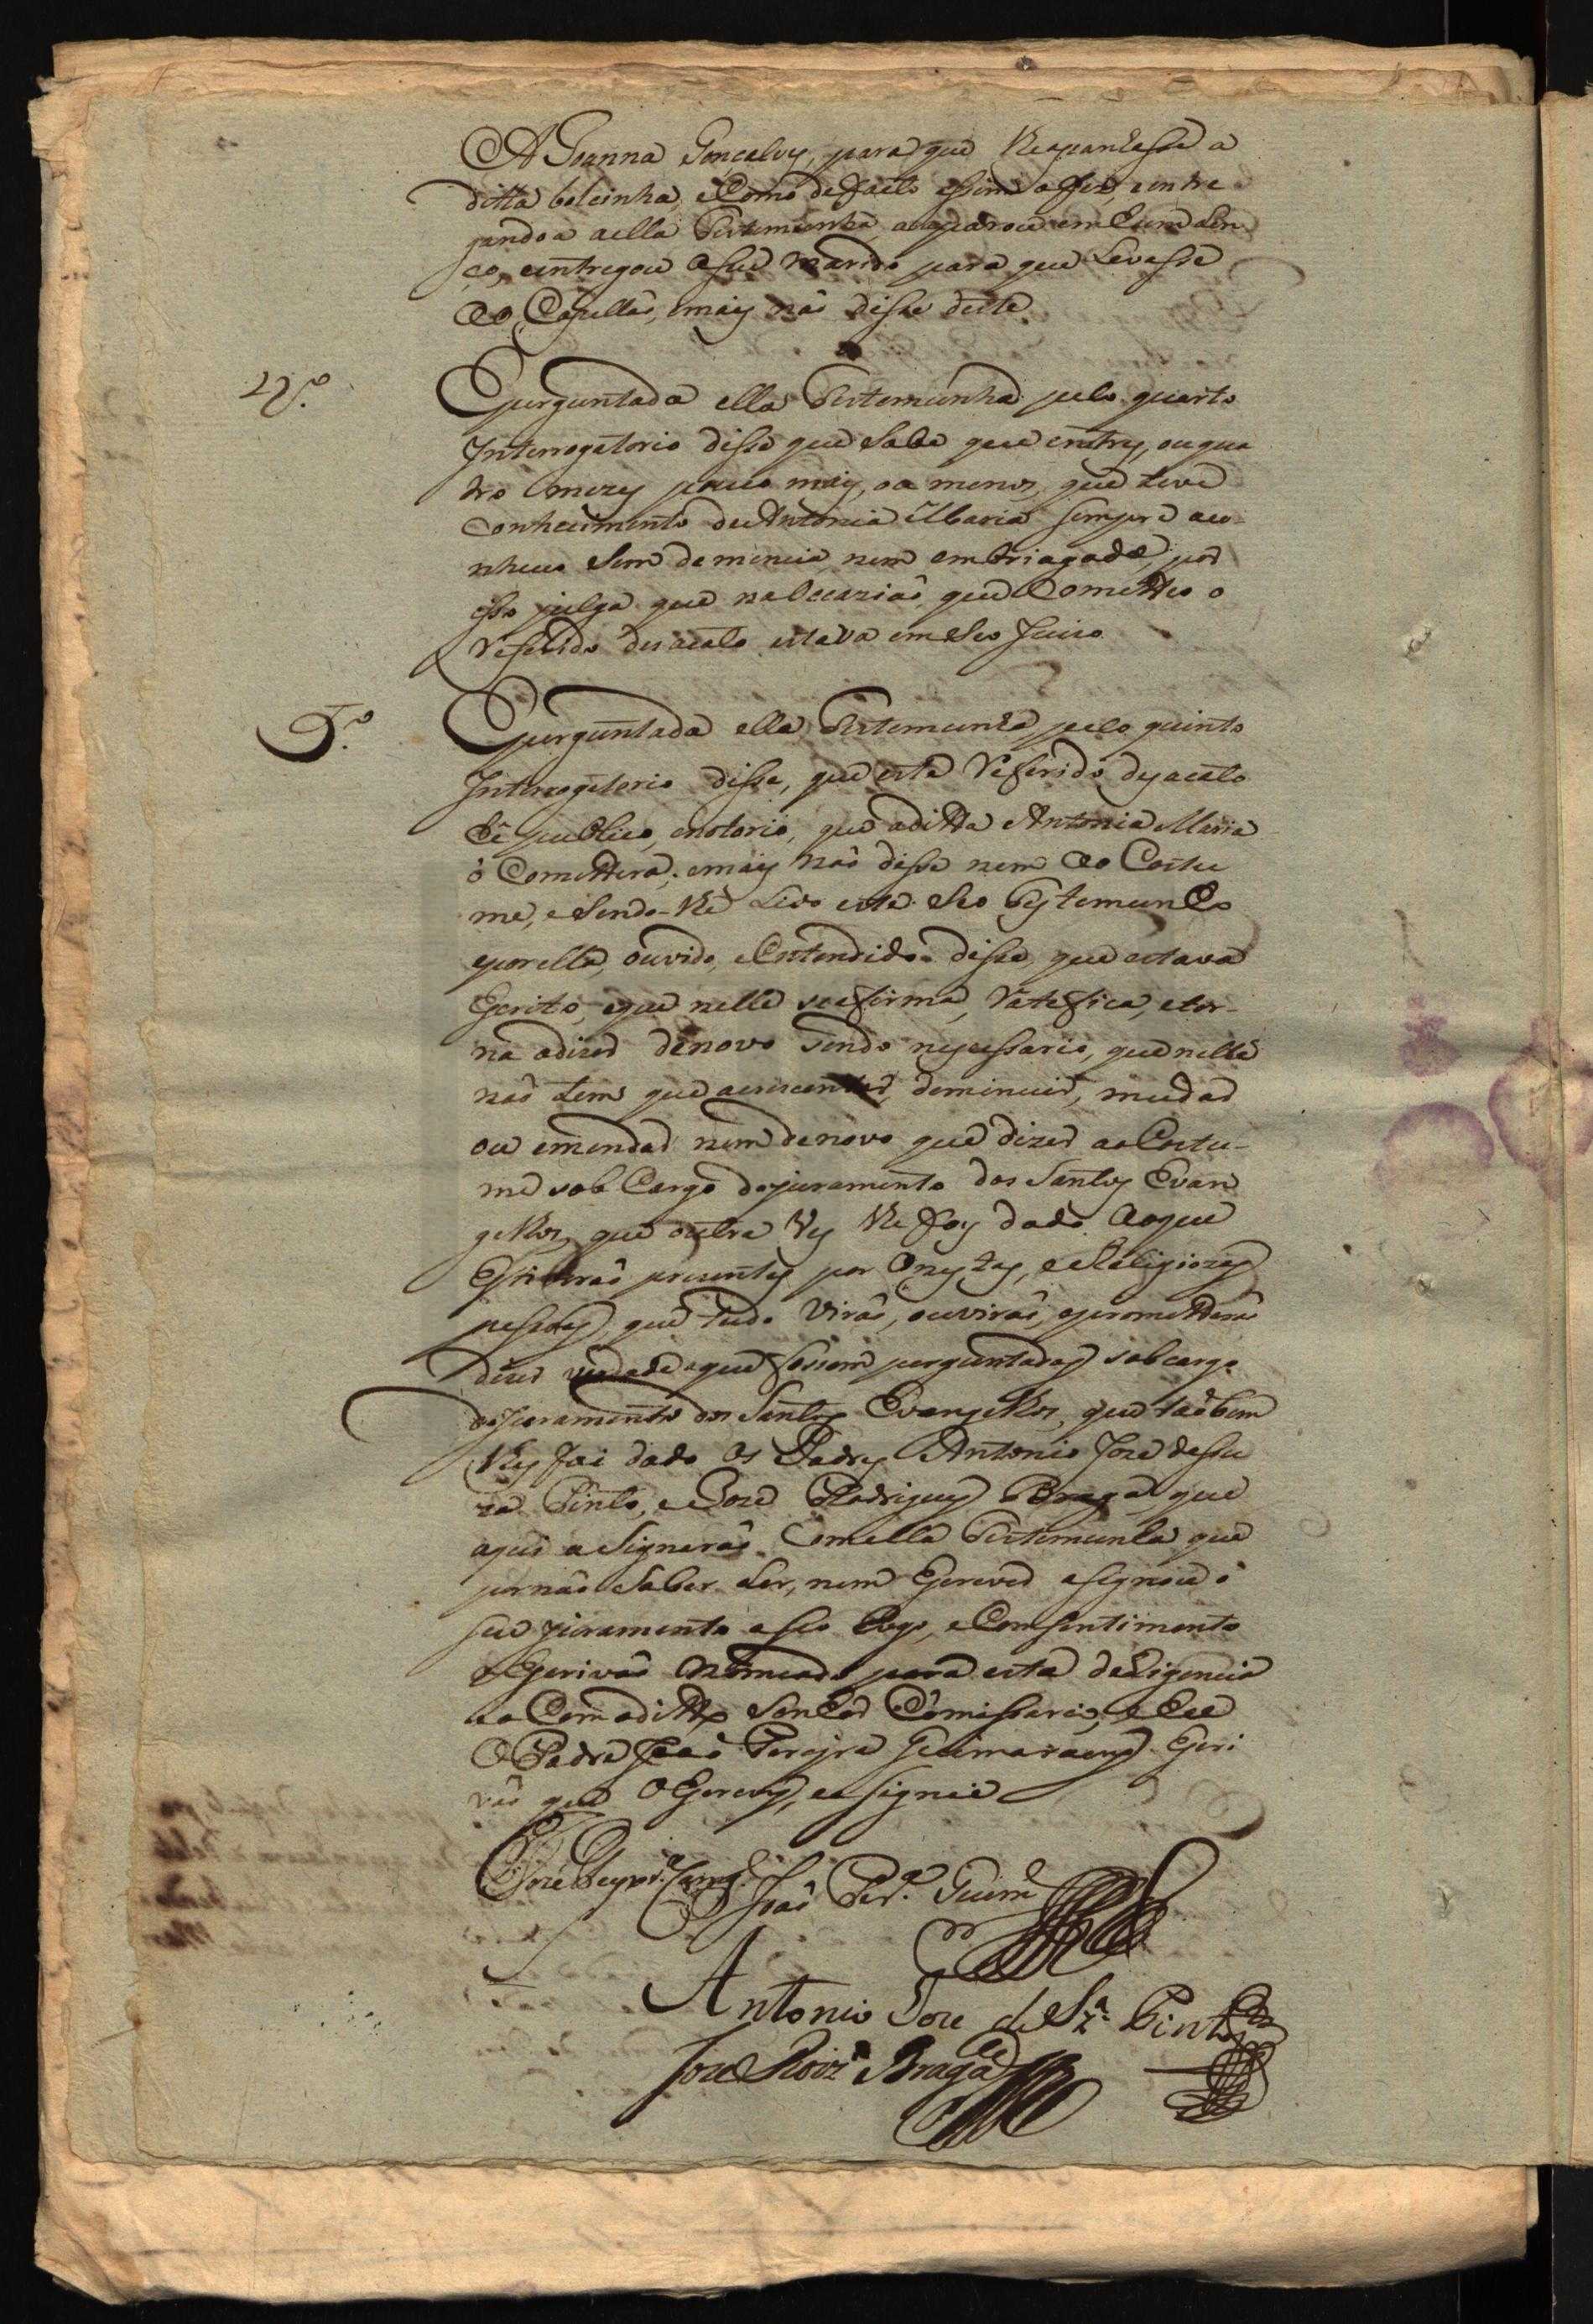 A Joanna Gonçalvez, para que lhe apanhasse a
ditta bolcinha, e Como de facto assim o fez, entre
gandoa a ella Testemunha, a agarrou em hum len
ço, e entregou a seu marido para que Levasse
ao Capellaõ, e mais naõ disse deste
4º.
E perguntada ella Testemunha pelo quarto
Interrogatorio disse que Sabe que em trez, ou qua
tro mezes pouco mais, ou menos, que teve
Conhecimento de Antonia Maria sempre a co-
nheceo sem demencia nem embriagada, por
isso julga que na Occaziaõ que Cometteo o
referido desacato estava em Seo Juizo
5º.
E perguntada ella Testemunha pelo quinto
Interrogatorio disse, que este referido dezacato
hé publico, e notorio, que a ditta Antonia Maria
o Comettera; e mais naõ disse nem ao Costu
me, e Sendo-lhe Lido este Seo Testemunho
e por ella, ouvido, e Entendido disse, que estava
Escrito, e que nelle se affirma, ratefica, e tor-
na a dizer denovo sendo necessario, que nelle
naõ tem que acrescentar, deminuir, mudar
ou emendar nem denovo que dizer ao Costu-
me sob Cargo do juramento dos Santos Evan
gelhos, que outra vez lhe foy dado ao que
Estiveraõ prezentes por Onestas, e Religiozas
pessoas que tudo viraõ, ouviraõ, e prometteraõ
dizer verdade no que fossem perguntadas sob cargo
do Juramento dos Santos Evangelhos, que taõbem
lhes foi dado os Padres Antonio Joze de Sou
za Pinto, e Joze Rodrigues Braga que
aqui asignaraõ Com ella Testemunha que
por naõ Saber Ler, nem Escrever asignou o
seu juramento a seo Rogo, e Consentimento
o Escrivaõ Nomeado para esta deligencia
Com o ditto Senhor Comissario, e Eu
O Padre Joaõ Pereyra Guimaraens Escri
vaõ que O Escrevy, e asignei
Joaõ Per.ª Guim.es
Antonio Joze de Sz.ª Pinto
Joze Roiz Braga